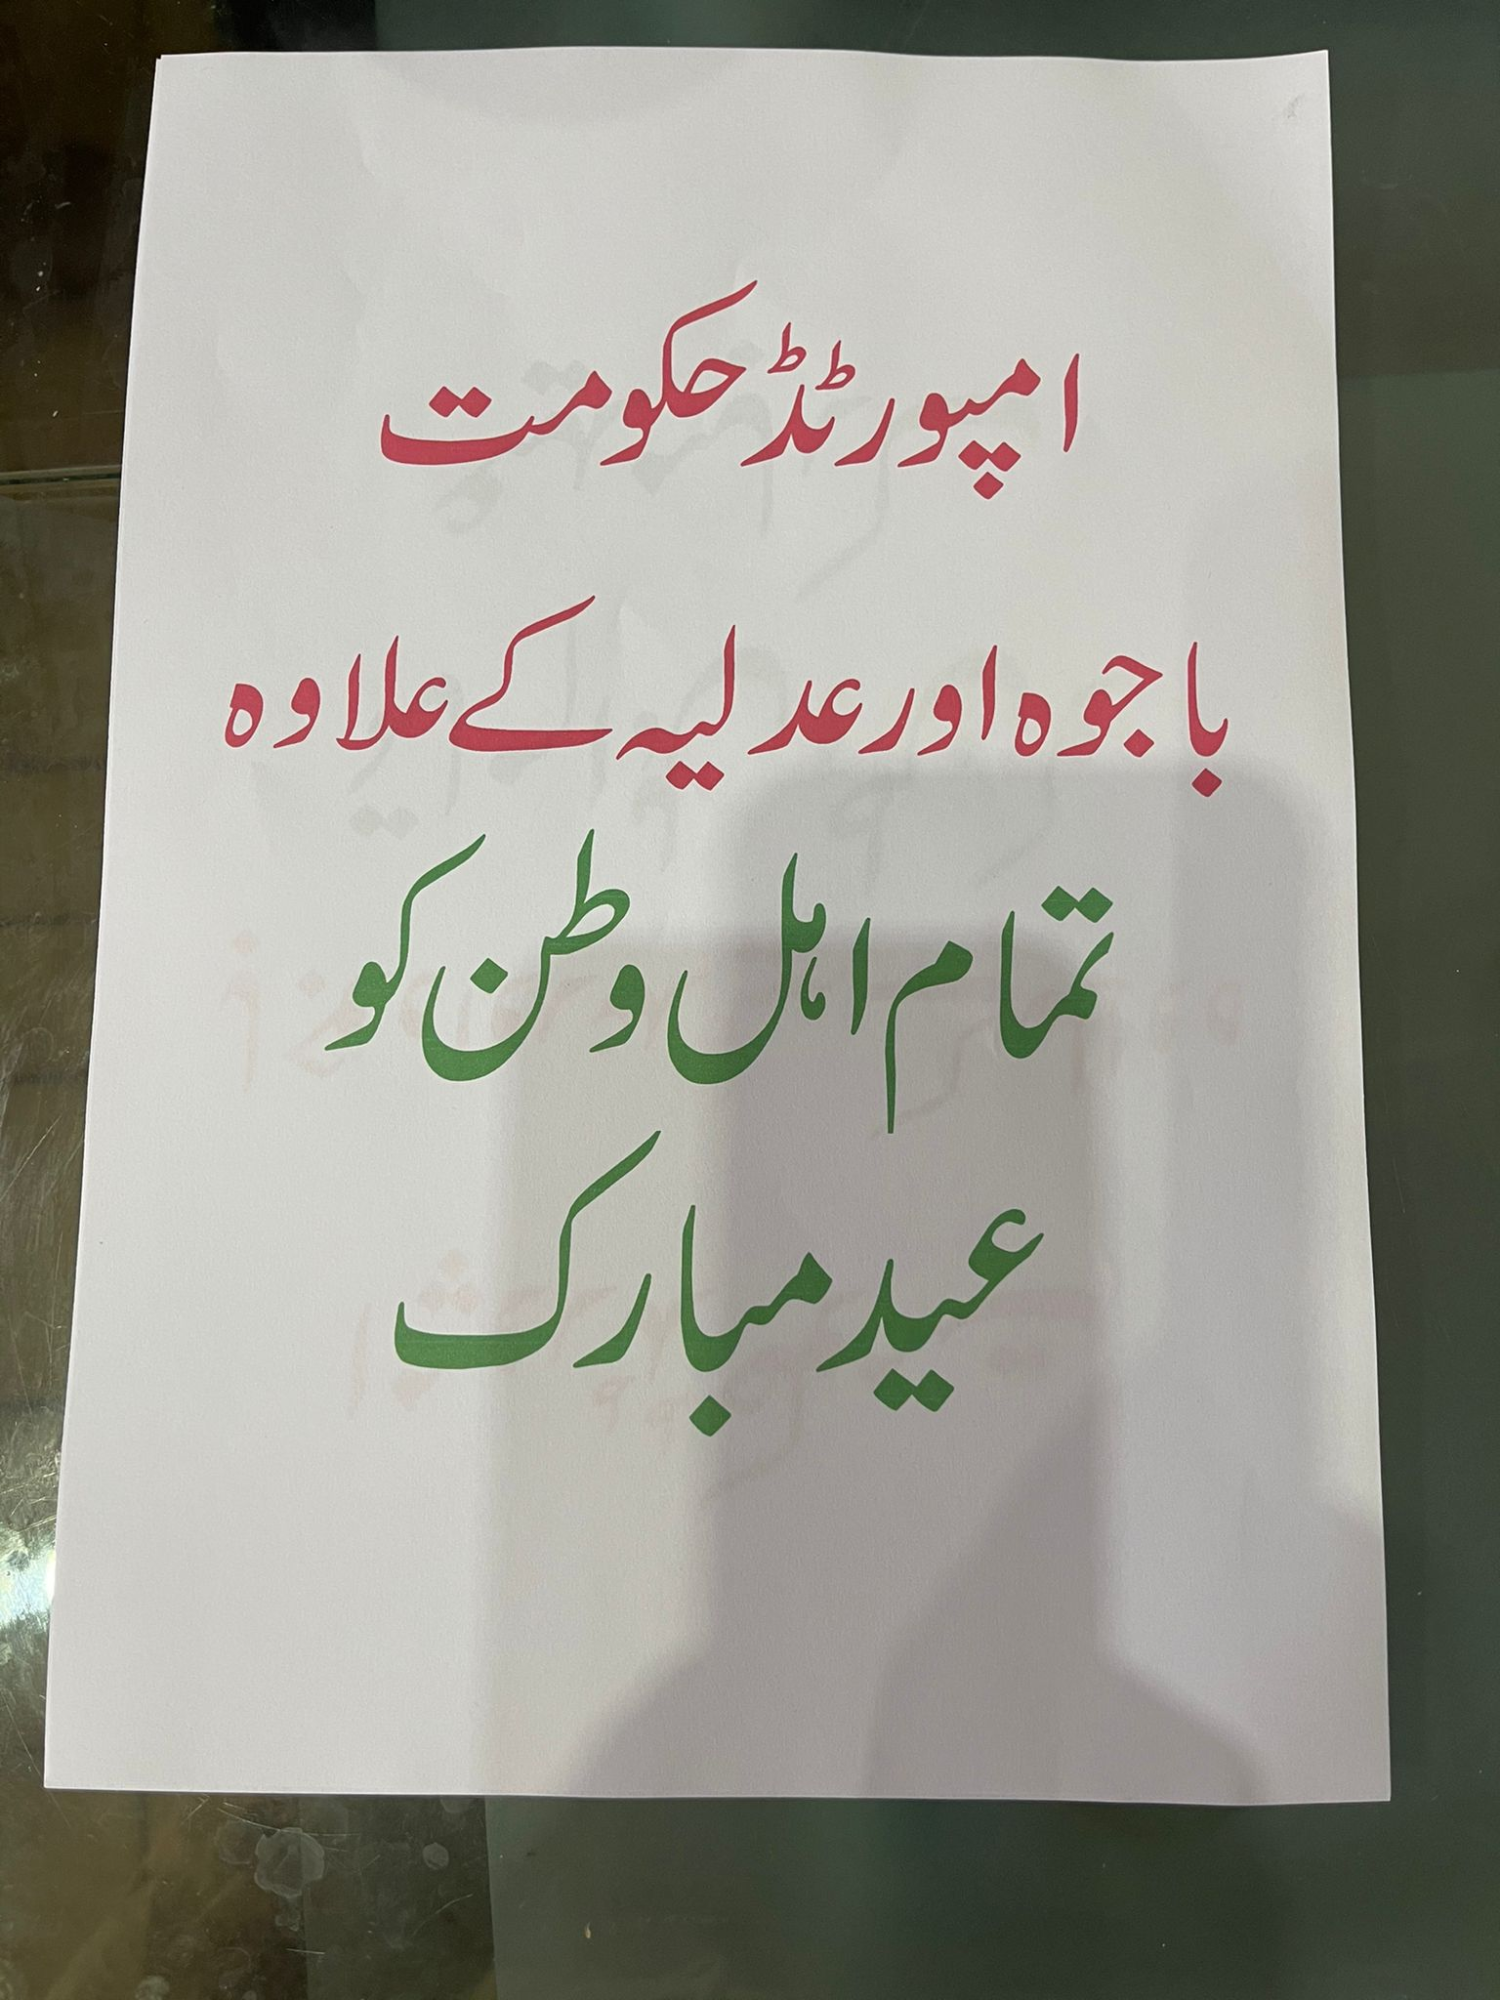 امپورٹڈ حکومت
باجوہ اور عدلیہ کے علاوہ
تمام اہل وطن کو
عید مبارک